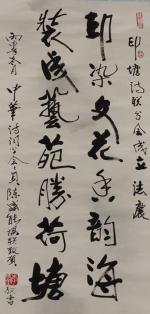 印塘诗联学会成立 法展
印染文花香韵海
装成艺苑胜荷塘
丙寅冬月 中华诗词学会会员陈瀛能撰联敬贺